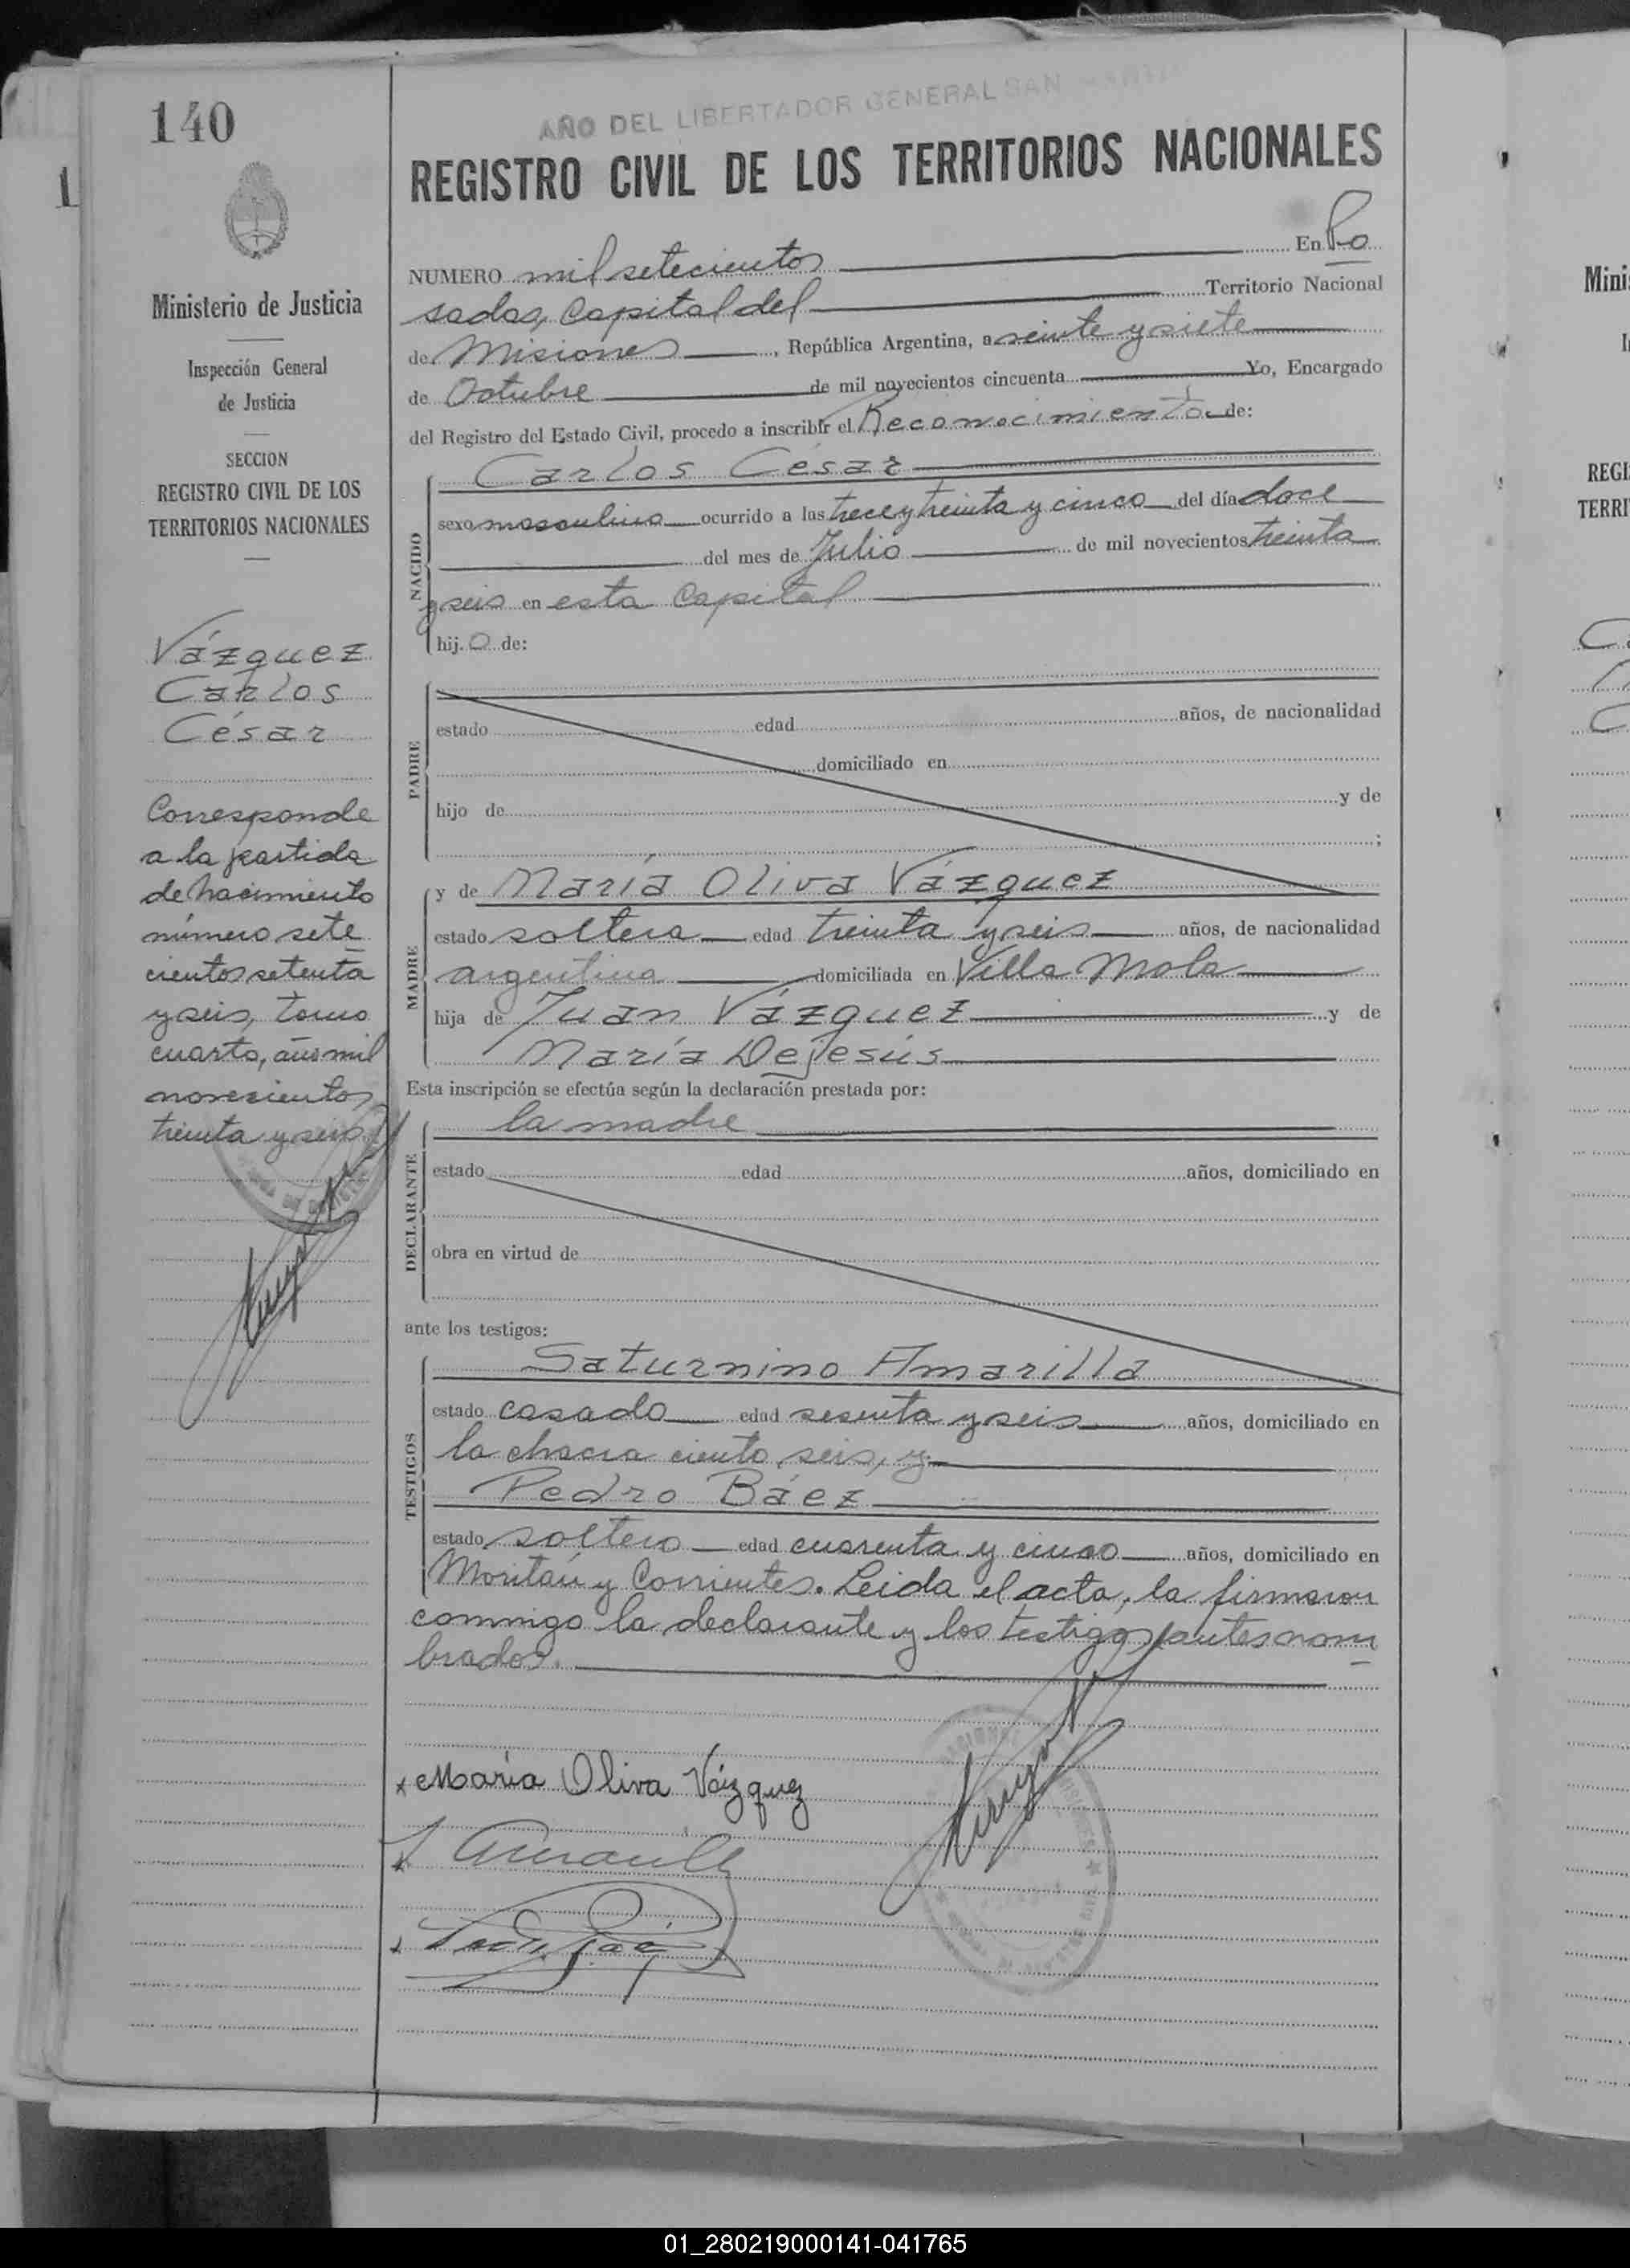 140
AÑO DEL LIBERTADOR GENERAL SAN
REGISTRO CIVIL DE LOS TERRITORIOS NACIONALES
Ministerio de Justicia
Inspección General
de Justicia
SECCION
REGISTRO CIVIL DE LOS
TERRITORIOS NACIONALES
Vázquez
Carlos
César
Corresponde
a la partida
de nacimiento
número sete
cientos setenta
y seis, tomo
cuarto, año mil
novecientos
treinta y seis
NUMERO mil setecientos En Po
sadas, Capital del Territorio Nacional
de Misiones, República Argentina, a veinte y siete
de Octubre de mil novecientos cincuenta Yo, Encargado
del Registro del Estado Civil, procedo a inscribir el Reconocimiento de:
NACIDO
Carlos César
sexo masculino ocurrido a las trece y treinta y cinco del día doce
del mes de Julio de mil novecientos treinta
y seis en esta Capital
hij.o de:
PADRE
estado edad años, de nacionalidad
domiciliado en
hijo de y de
;
MADRE
y de María Oliva Vázquez
estado soltera edad treinta y seis años, de nacionalidad
argentina domiciliada en Villa Mola
hija de Juan Vázquez y de
María Dejesús
Esta inscripción se efectúa según la declaración prestada por:
DECLARANTE
la madre
estado edad años, domiciliado en
obra en virtud de
ante los testigos:
TESTIGOS
Saturnino Amarilla
estado casado edad sesenta y seis años, domiciliado en
la chacra ciento seis, y
Pedro Báez
estado soltero edad cuarenta y cinco años, domiciliado en
y Corrientes. Leida el acta, la firmaron
conmigo la declarante y los testigos antes nom
brados.
María Oliva Vázquez
Mini
REGI
TERRI
01_280219000141-041765